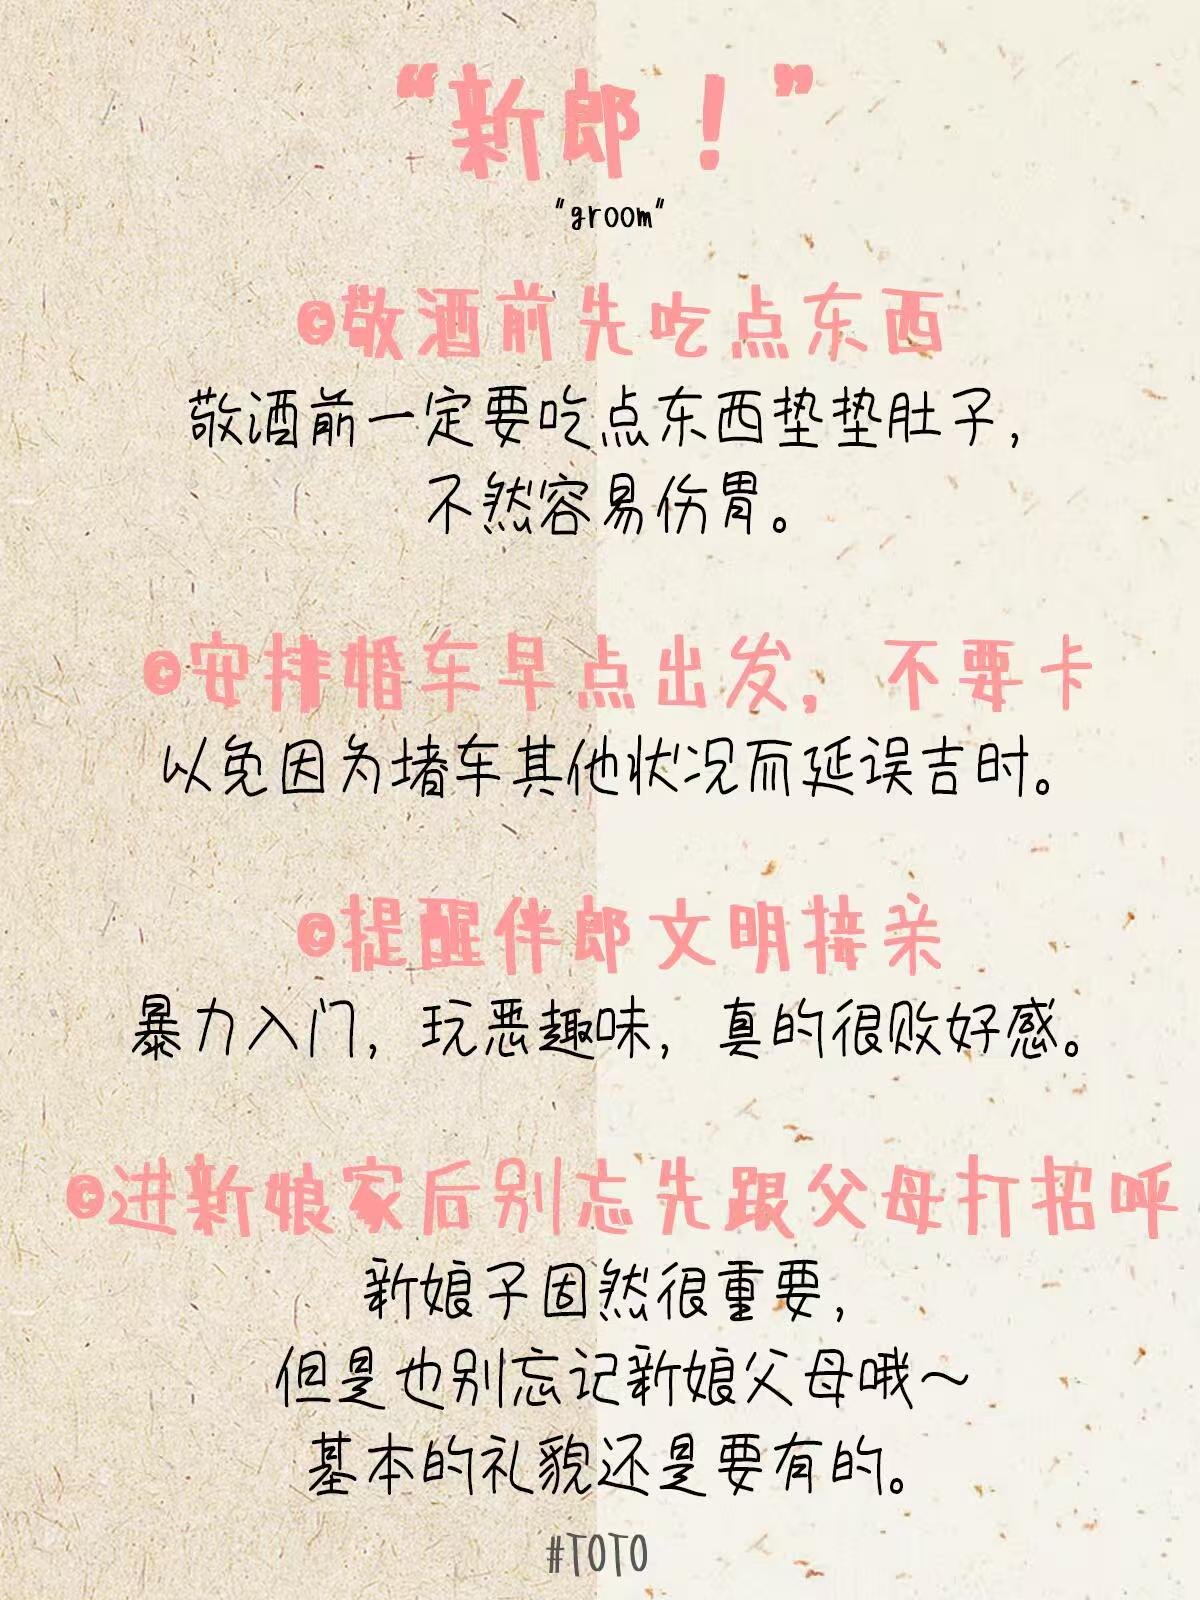 “新郎！”
"groom"
©敬酒前先吃点东西
敬酒前一定要吃点东西垫垫肚子，
不然容易伤胃。
©安排婚车早点出发，不要卡
以免因为堵车其他状况而延误吉时。
©提醒伴郎文明接亲
暴力入门，玩恶趣味，真的很败好感。
©进新娘家后别忘先跟父母打招呼
新娘子固然很重要，
但是也别忘记新娘父母哦～
基本的礼貌还是要有的。
#TOTO